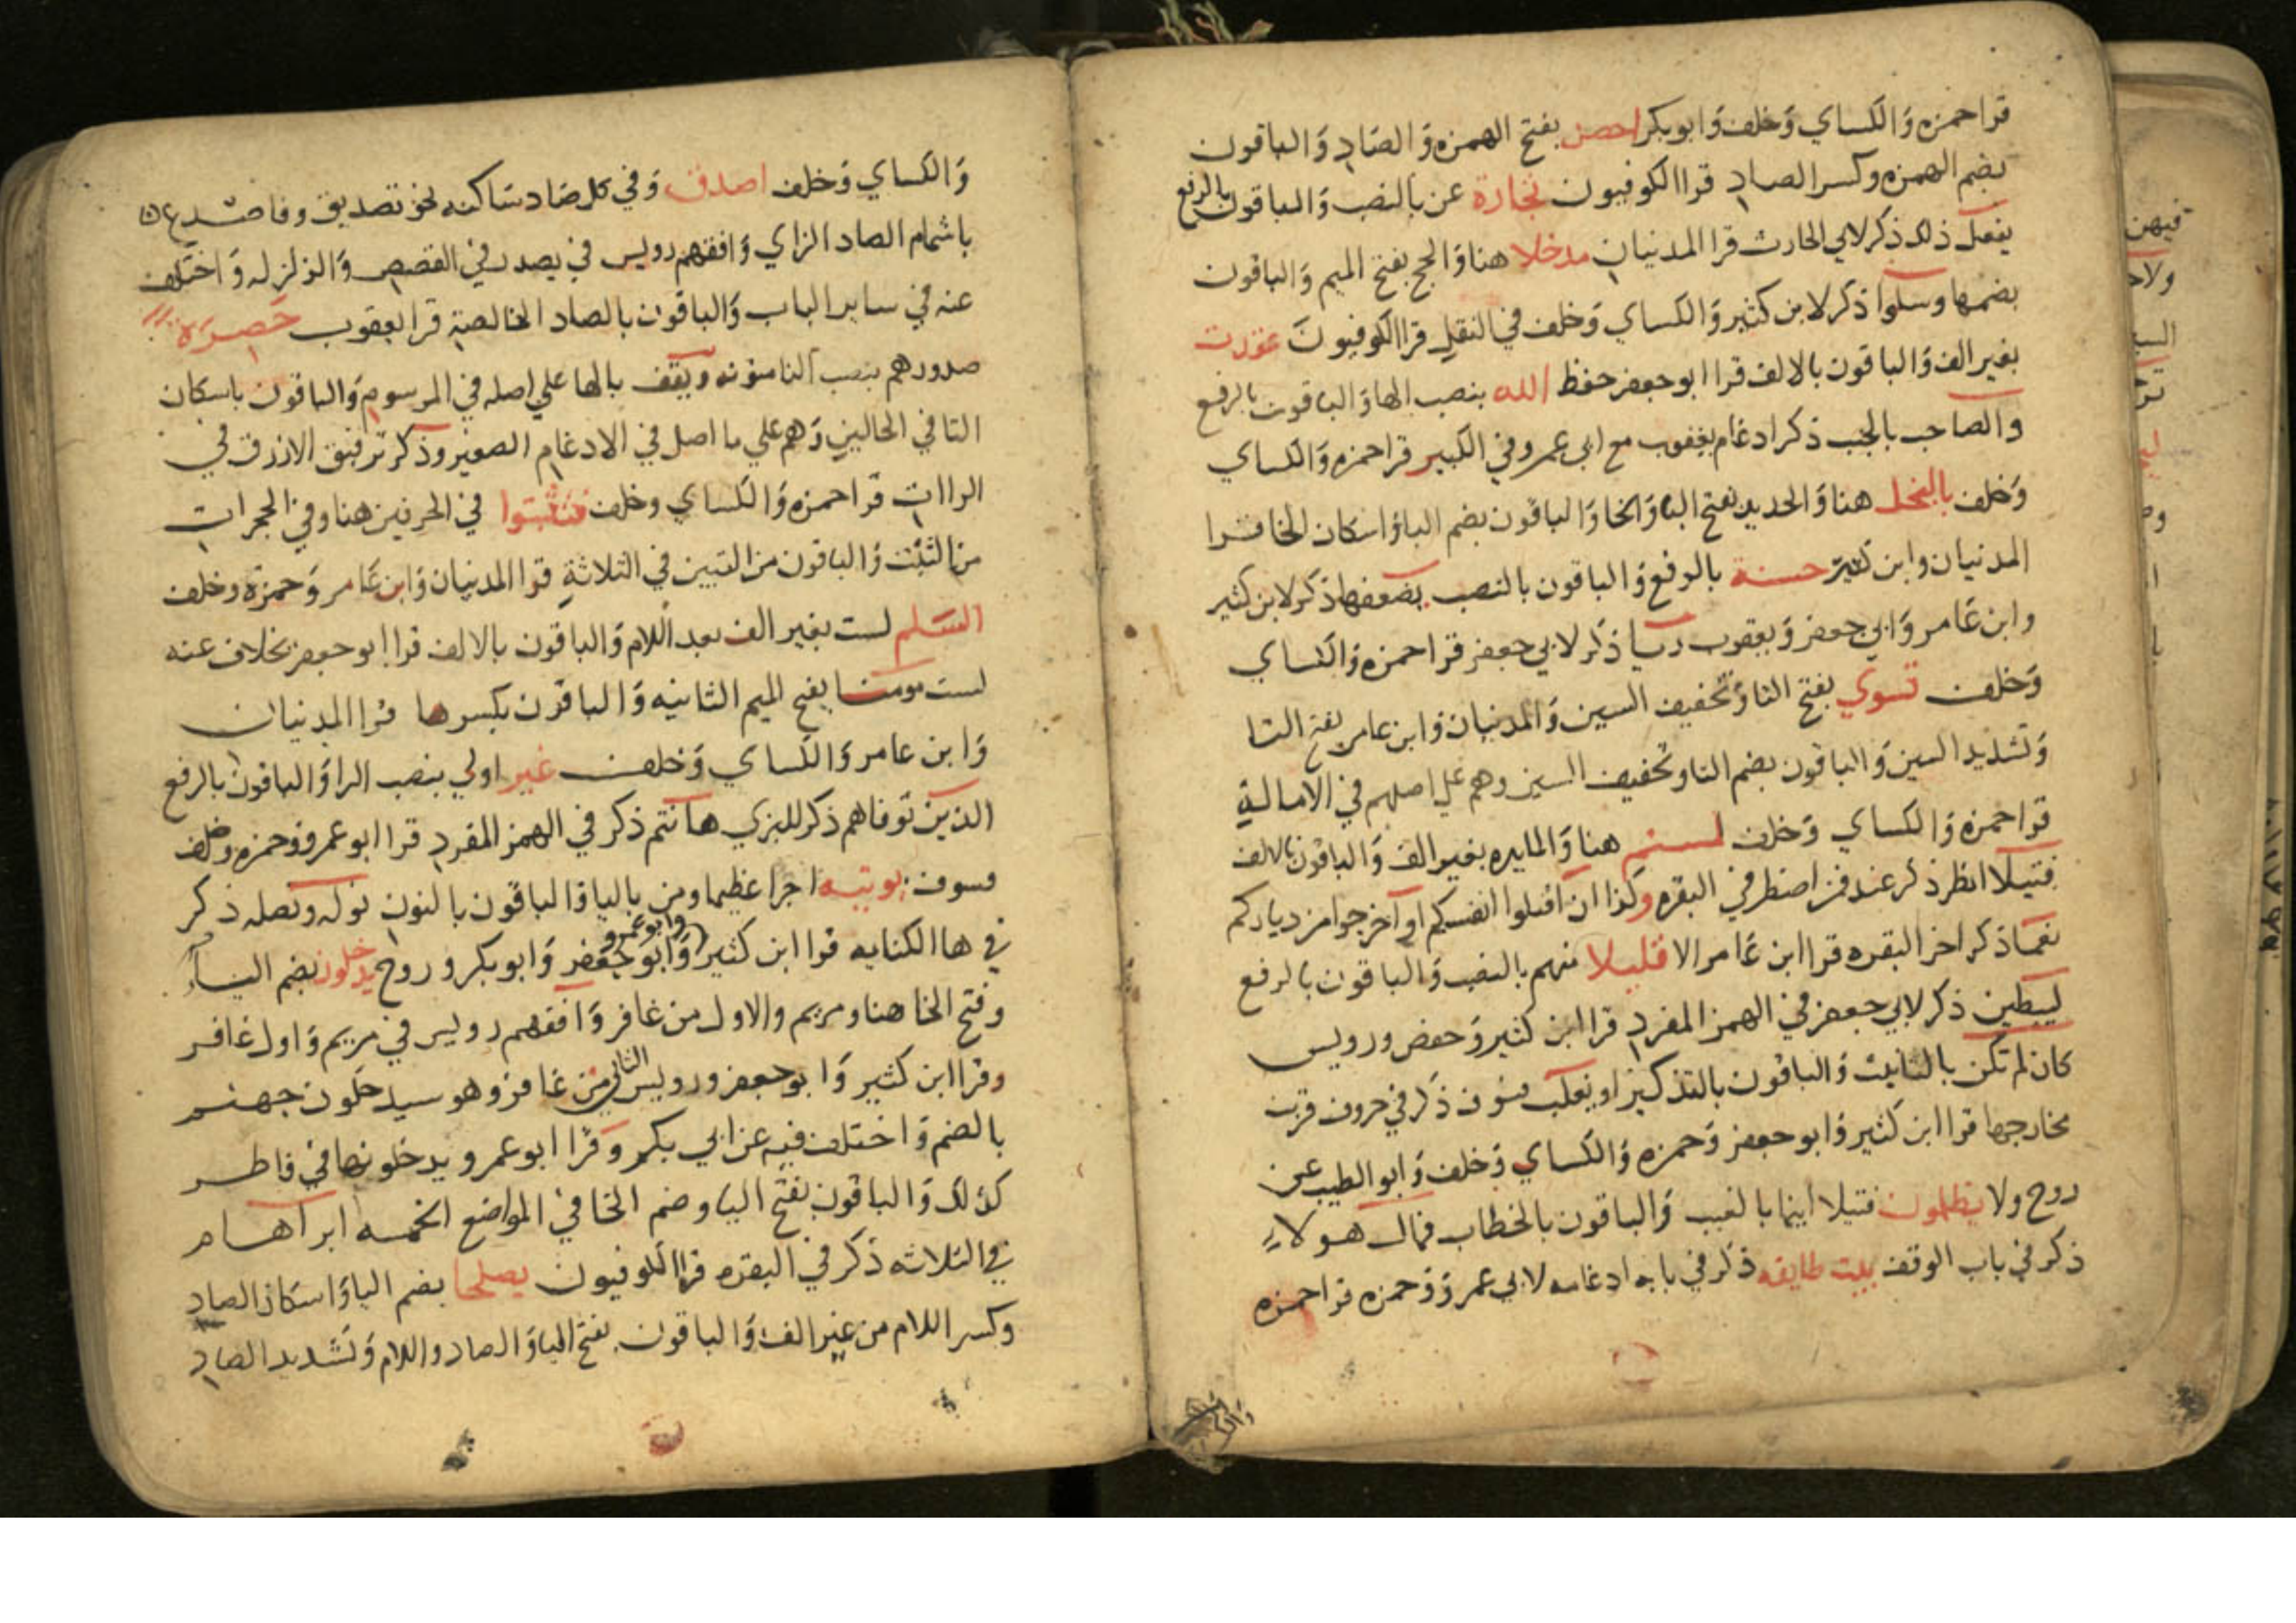 قرا حمزه والكساي وخلف وابو بكر احصن بفتح الهمزه والصاد والباقون
بضم الهمزه وكسر الصاد قرا الكوفيون تجارة عن بالنصب والباقون بالرفع
يفعل ذلك ذكر لابي الحارث قرا المدنيان مدخلا هنا والحج بفتح الميم والباقون
بضمها وسلوا ذكر لابن كثير والكساي وخلف في النقل قرا الكوفيون عقدت
بغير الف والباقون بالالف قرا ابو جعفر حفظ الله بنصب الها والباقون بالرفع
والصاحب بالجنب ذكر ادغام يعقوب مع ابي عمرو في الكبير قرا حمزه والكساي
وخلف بالبخل هنا والحديد بفتح البا والخا والباقون بضم البا واسكان الخا قرا
المدنيان وابن كثير حسنة بالرفع والباقون بالنصب يضعفها ذكر لابن كثير
وابن عامر وابي جعفر ويعقوب ريا ذكر لابي جعفر قرا حمزه والكساي
وخلف تسوي بفتح التا وتخفيف السين والمدنيان وابن عامر بفتح التا
وتشديد السين والباقون بضم التا وتخفيف السين وهم علي اصلهم في الامالة
قرا حمزه والكساي وخلف لمستم هنا والمايده بغير الف والباقون بالالف
فتيلا انظر ذكر عند فمن اضطر في البقره وكذا ان اقتلوا انفسكم او اخرجوا من دياركم
نعما ذكر اخر البقره قرا ابن عامر الا قليلا منهم بالنصب والباقون بالرفع
ليبطين ذكر لابي جعفر في الهمز المفرد قرا ابن كثير وحفص ورويس
كان لم تكن بالتانيث والباقون بالتذكير او يغلب فسوف ذكر في حروف قربت
مخارجها قرا ابن كثير وابو جعفر وحمزه والكساي وخلف وابو الطيب عن
روح ولا يظلمون فتيلا اينما بالغيب والباقون بالخطاب فمال هولاء
ذكر في باب الوقف بيت طايفه ذكر في بابه ادغامه لابي عمرو وحمزه قرا حمزه
والكساي وخلف اصدق وفي كل صاد ساكنه نحو تصديق وفاصدع
باشمام الصاد الزاي وافقهم رويس في يصدر في القصص والزلزله واختلف
عنه في ساير الباب والباقون بالصاد الخالصة قرا يعقوب حصرة
صدورهم بنصب التا منونه ويقف بالها علي اصله في المرسوم والباقون باسكان
التا في الحالين وهم علي ما اصل في الادغام الصغير وذكر ترقيق الازرق في
الراات قرا حمزه والكساي وخلف فتثبتوا في الحرفين هنا وفي الحجرات
من التثبت والباقون من التبيين في الثلاثة قرا المدنيان وابن عامر وحمزة وخلف
السلم لست بغير الف بعد اللام والباقون بالالف قرا ابو جعفر بخلاف عنه
لست مومنا بفتح الميم الثانيه والباقون بكسرها قرا المدنيان
وابن عامر والكساي وخلف غير اولي بنصب الرا والباقون بالرفع
الذين توفاهم ذكر للبزي هانتم ذكر في الهمز المفرد قرا ابو عمرو وحمزه وخلف
فسوف يوتيه اجرا عظيما ومن باليا والباقون بالنون نوله ونصله ذكر
في ها الكنايه قرا ابن كثير وابو عمرو وابو جعفر وابو بكر وروح يدخلون بضم الياء
وفتح الخا هنا ومريم والاول من غافر وافقهم رويس في مريم واول غافر
وقرا ابن كثير وابو جعفر ورويس الثاني من غافر وهو سيدخلون جهنم
بالضم واختلف فيه عن ابي بكر وقرا ابو عمرو يدخلونها في فاطر
كذلك والباقون بفتح اليا وضم الخا في المواضع الخمسه ابراهام
في الثلاثه ذكر في البقره قرا الكوفيون يصلحا بضم اليا واسكان الصاد
وكسر اللام من غير الف والباقون بفتح اليا والصاد واللام وتشديد الصاد